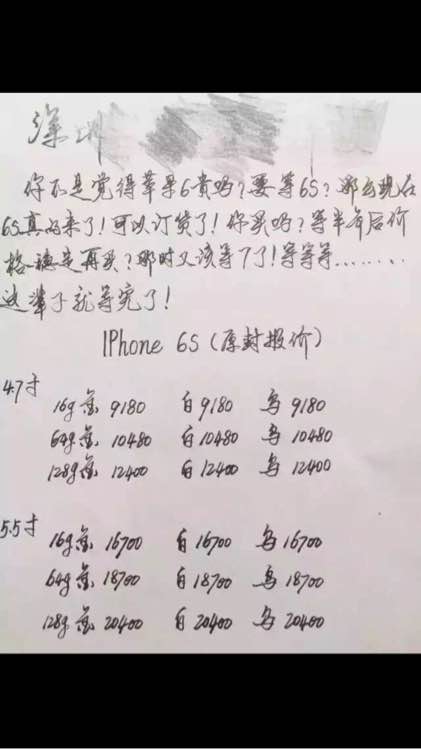 深圳
你不是觉得苹果6貴吗?要等6S?那么现在
6S真的来了!可以订货了!你买吗?等半年后价
格稳定再买?那时又该等7了!等等等........
这辈子就等完了!
IPhone 6S(原封报价)
4.7寸
16g金 9180 白9180 乌 9180
64g金 10480 白10480 乌 10480
128g金 12400 白12400 乌 12400
5.5寸
16g金 16700 白 16700 乌16700
64g金 18700 白 18700 乌18700
128g金 20400 白 20400 乌 20400